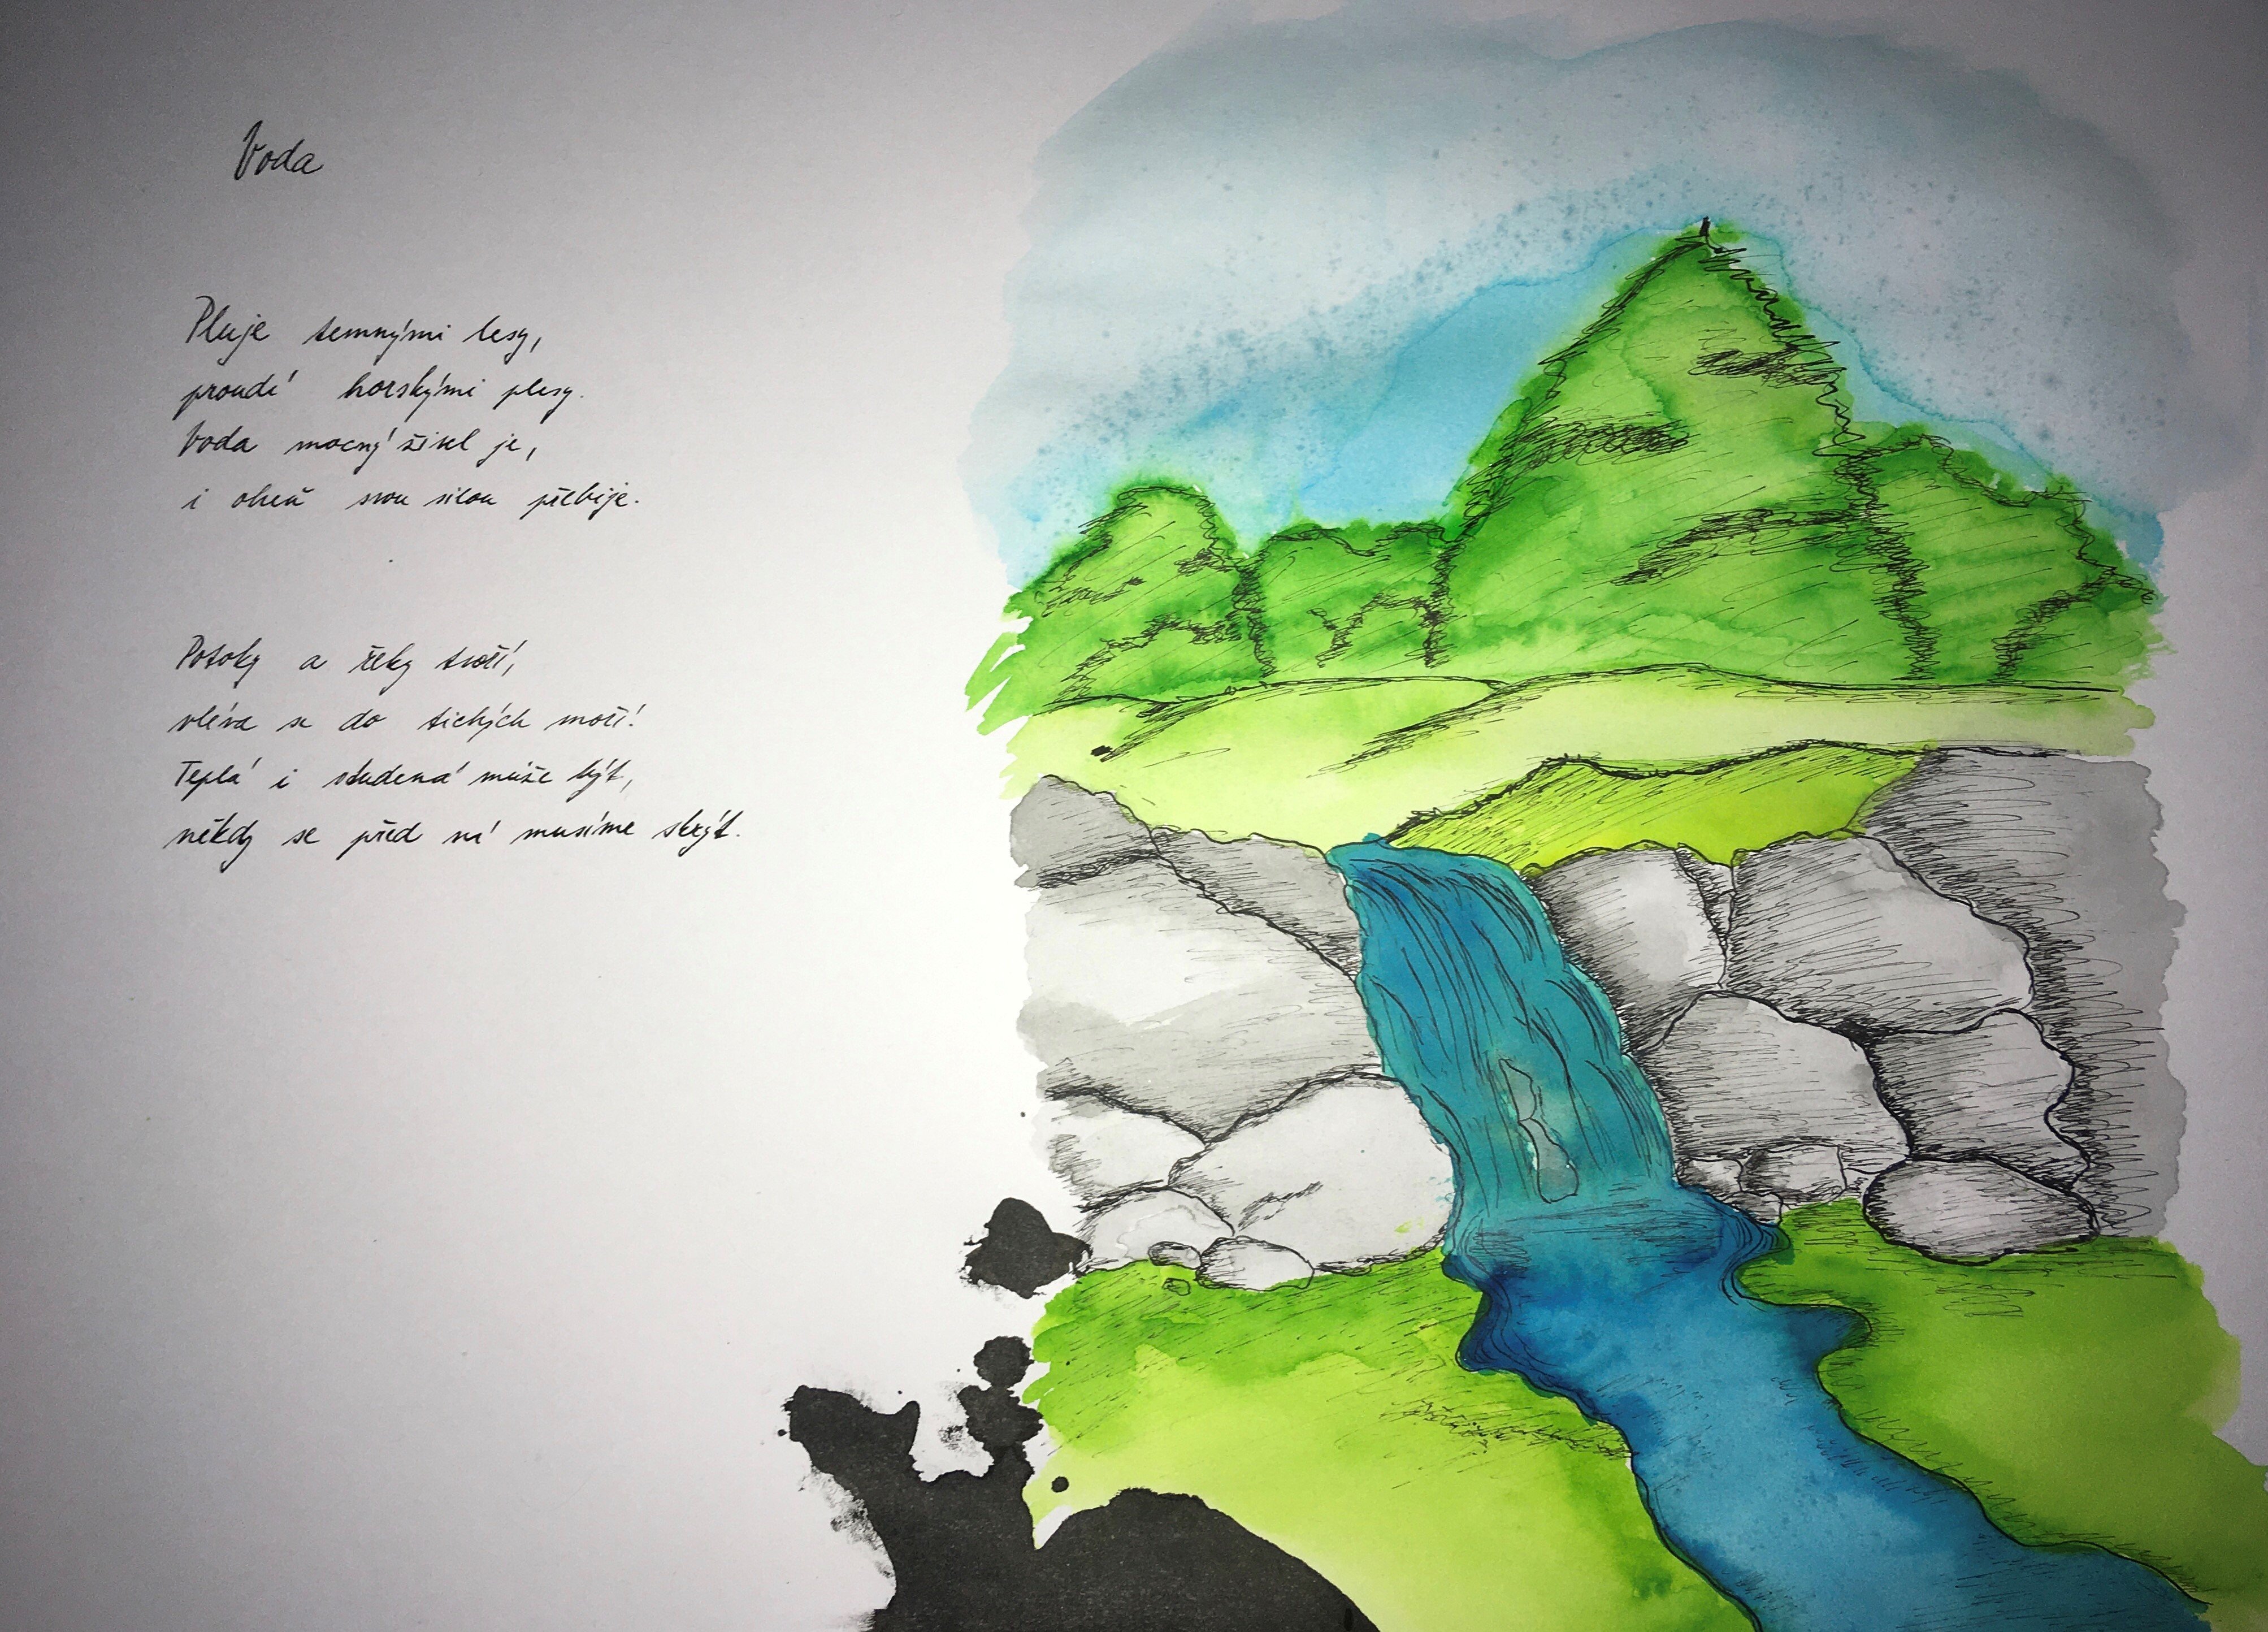 Voda
Pluje temnými lesy,
proudí horskými plesy.
Voda mocný živel je,
i oheň svou silou přebije.
Potoky a řeky tvoří,
vlévá se do tichých moří!
Teplá i studená může být,
někdy se před ní musíme skrýt.